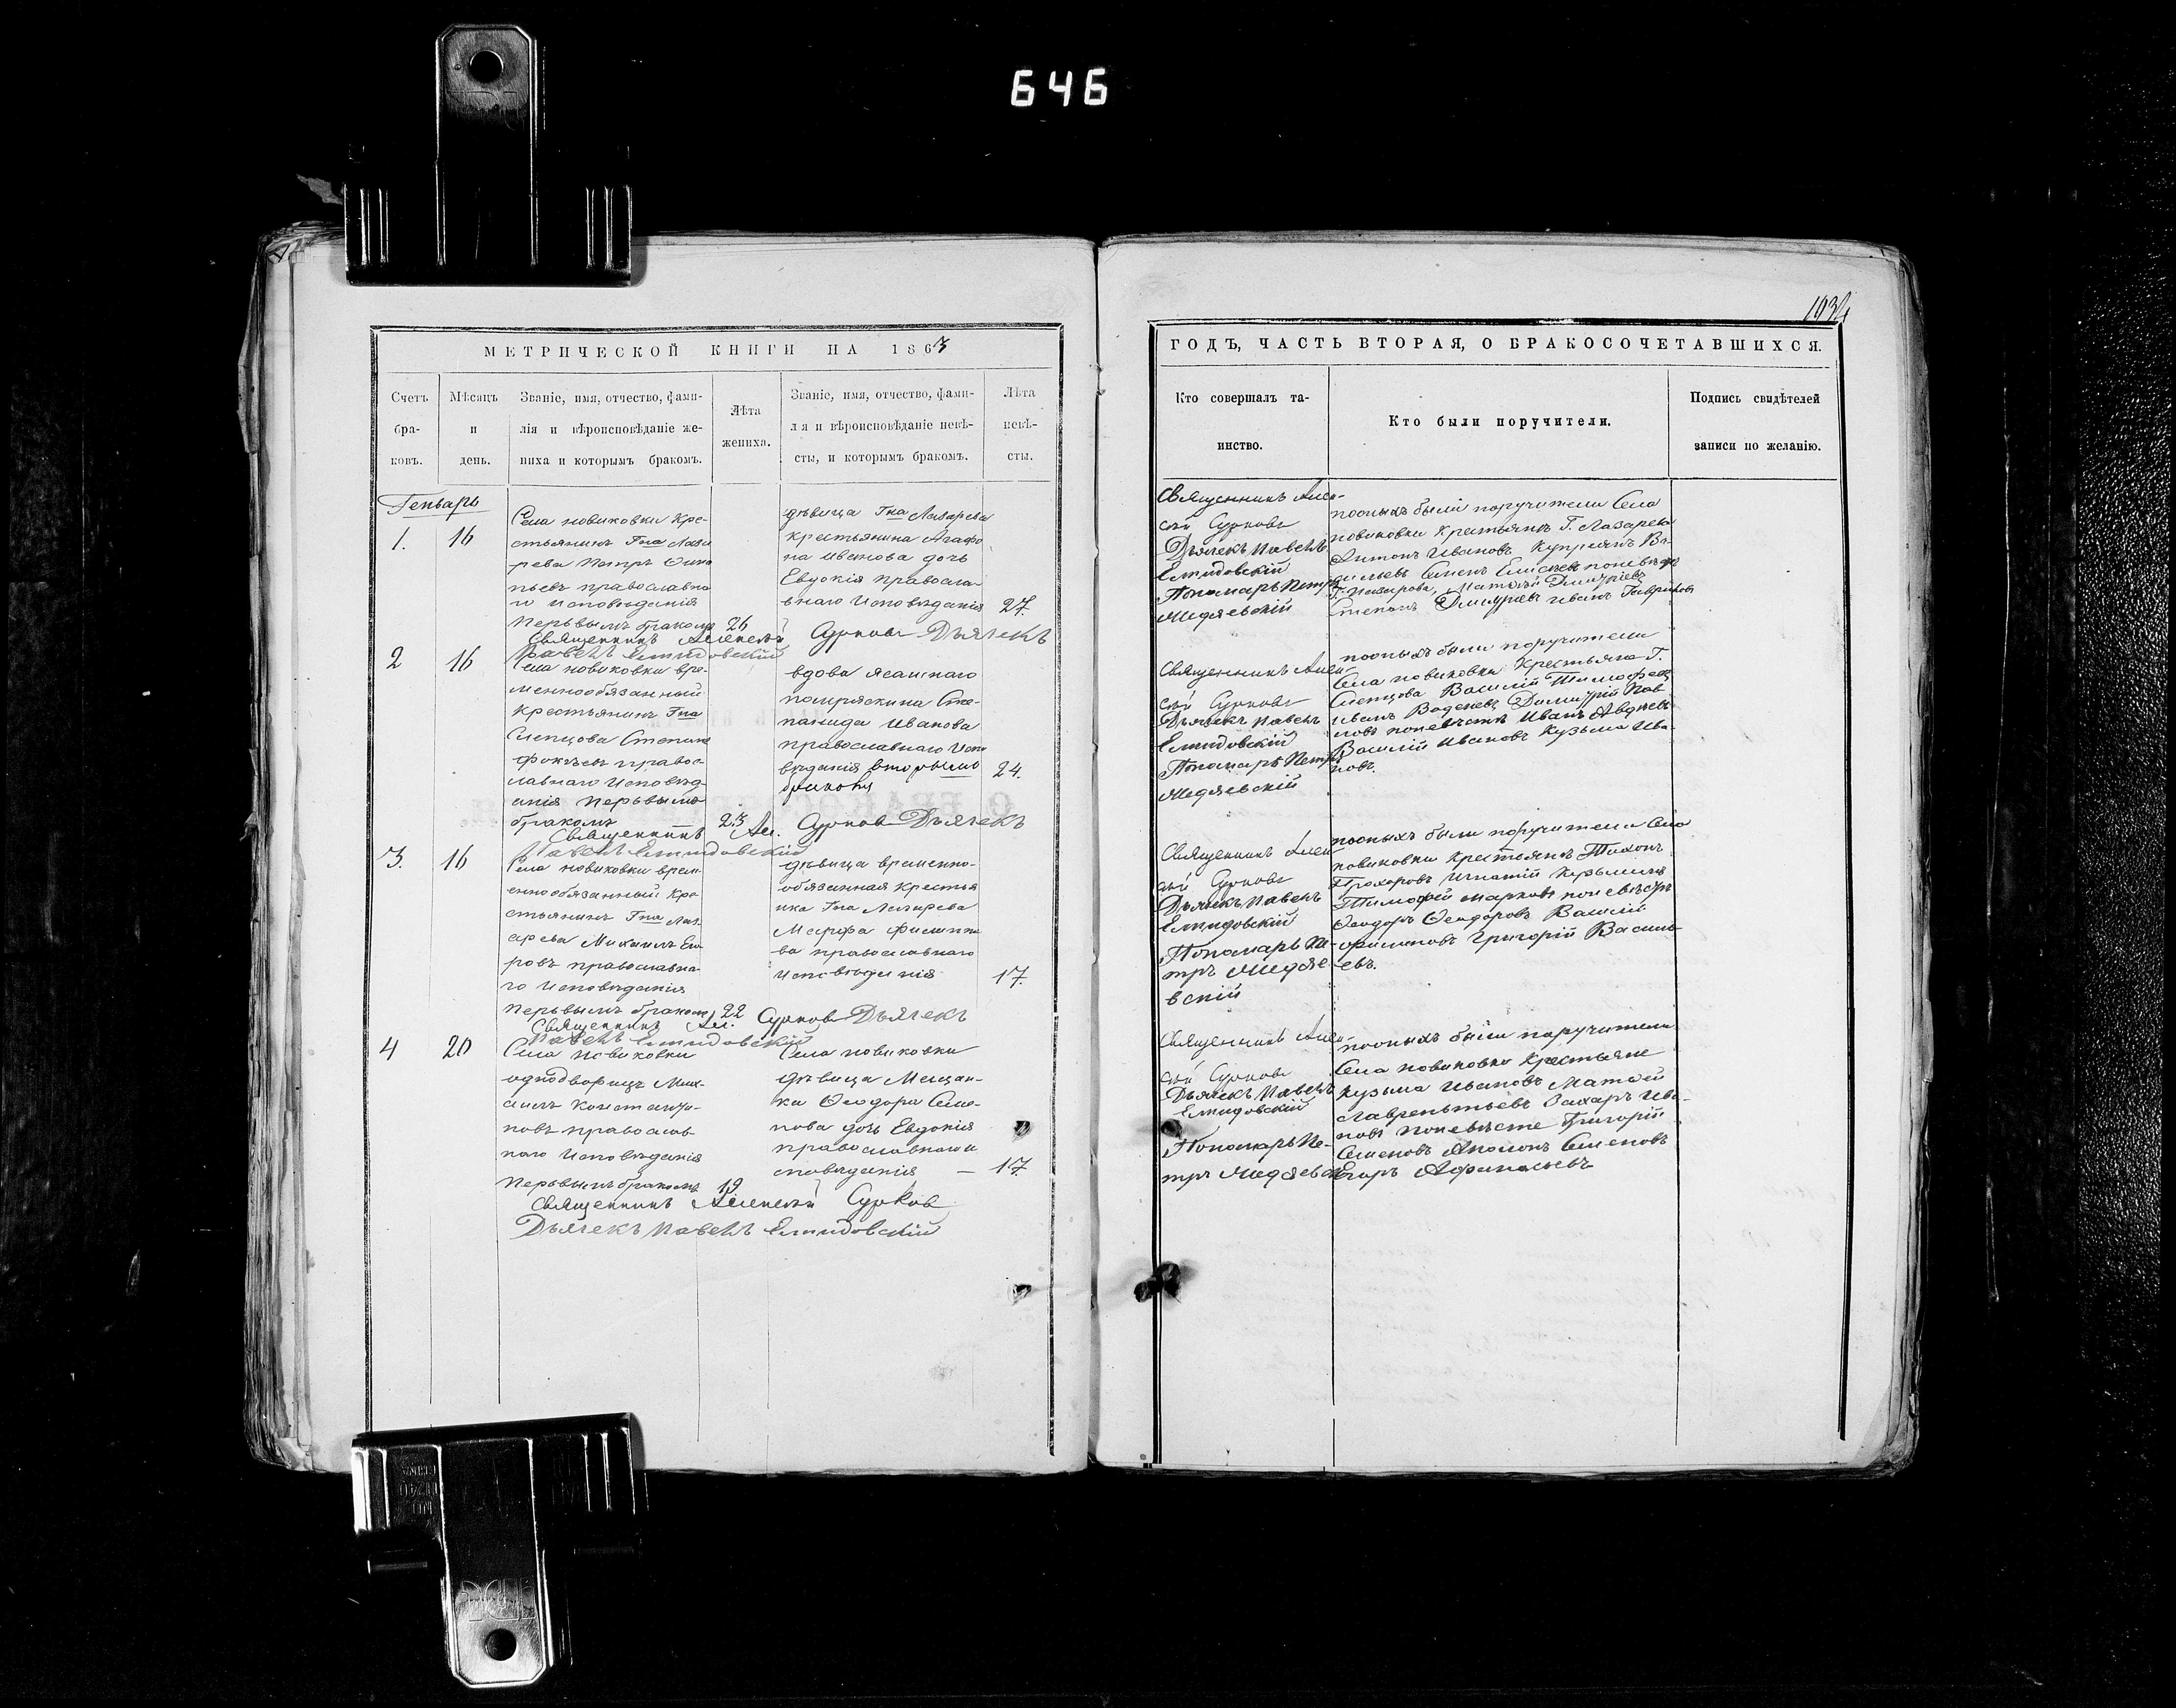 646
1934
МЕТРИЧЕСКОЙ КНИГИ НА 1863
Счетъ бра- ковъ.
Мѣсяцъ и день.
Званіе, имя, отчество, фами-
лія и вѣроисповѣданіе же-
ниха и которымъ бракомъ.
Лѣта
жениха.
Званіе, имя, отчество, фами-
лія и вѣроисповѣданіе невѣ-
сты, и которымъ бракомъ.
Лѣта
невѣ-
сты.
Генварь
1. 16
Села новиковки Кре-
стьянинъ Гна Лаза
рева Петръ
православна
го Исповѣданія
первымъ бракомъ 26
дѣвица Гна Лазарева
крестьянина Агафо
на Иванова дочь
Евдокія правосла-
внаго Исповѣданія 27.
Священникъ Алексѣй Сурковъ Дьячекъ
Павелъ Елпидовскій
2 16
Села новиковки вре-
меннообязанный
Крестьянинъ Гна
Слепцова Степанъ
Фокѣевъ правос-
лавнаго Исповѣд-
анія первымъ
бракомъ 23
вдова ясашнаго
Сте-
панида Иванова
православнаго Испо
вѣданія вторымъ 24.
бракомъ
Священникъ Ал. Сурковъ Дьячекъ
Павелъ Елпидовскій
3. 16
Села новиковки врем-
еннообязанный Кре-
стьянинъ Гна Лаз-
арева Михаилъ Его
ровъ православна-
го Исповѣданія
первымъ бракомъ 22
дѣвица временно-
обязанная крестья
нка Гна Лазарева
Марфа Филиппо
ва православнаго
Исповѣданія 17.
Священникъ Ал. Сурковъ Дьячекъ
Павелъ Елпидовскій
4 20
Села новиковки
однодворецъ Мих-
аилъ Константи-
новъ православ-
наго Исповѣданія
первымъ бракомъ 19
Села новиковки
дѣвица Мещан-
ка Ѳеодора Семе-
нова дочь Евдокія
православнаго и
сповѣданія — 17
Священникъ Алексѣй Сурков
Дьячекъ Павелъ Елпидовскій
ГОДЪ, ЧАСТЬ ВТОРАЯ, О БРАКОСОЧЕТАВШИХСЯ.
Кто совершалъ та-
инство.
Кто были поручители.
Подпись свидѣтелей
записи по желанію.
Священникъ Алек-
сѣй Сурковъ
Дьячекъ Павелъ
Елпидовскій
Пономарь Петръ
Медяевскій
поонымъ были поручители Села
новиковки крестьяне Г. Лазарева
Антонъ Ивановъ Купреянъ Ва-
сильевъ Семенъ Елисѣевъ поневѣстѣ
Г. Лазарева, Матвѣй Димитріевъ
Степанъ Димитріевъ Иванъ Гавриловъ
Священникъ Алек-
сѣй Сурковъ
Дьячекъ Павелъ
Елпидовскій
Пономарь Петръ
Медяевскій
поонымъ были поручители
Села новиковки Крестьяне Г.
Слепцова Василій Тимофѣев
Иванъ Димитрій Пав-
ловъ поневѣстѣ Иванъ Авдѣевъ
Василій Ивановъ Кузьма Ива-
новъ.
Священникъ Алек-
сѣй Сурковъ
Дьячекъ Павелъ
Елпидовскій
Пономарь Пе-
тръ Медяе-
вскій
поонымъ были поручители Села
новиковки крестьяне Тихонъ
Прохоровъ Игнатій Кузьминъ
Тимофѣй Марковъ поневѣстѣ
Ѳеодоръ Ѳеодоровъ Василій
Филиповъ Григорій Василь-
евъ.
Священникъ Алек-
сѣй Сурковъ
Дьячекъ Павелъ
Елпидовскій
Пономарь Пе-
тръ Медяевскі
поонымъ были поручители
Села новиковки крестьяне
Кузьма Ивановъ Матвѣй
Лаврентьевъ Захаръ Ива-
новъ поневѣсте Григорій
Семеновъ Семеновъ
Егоръ Афанасьевъ